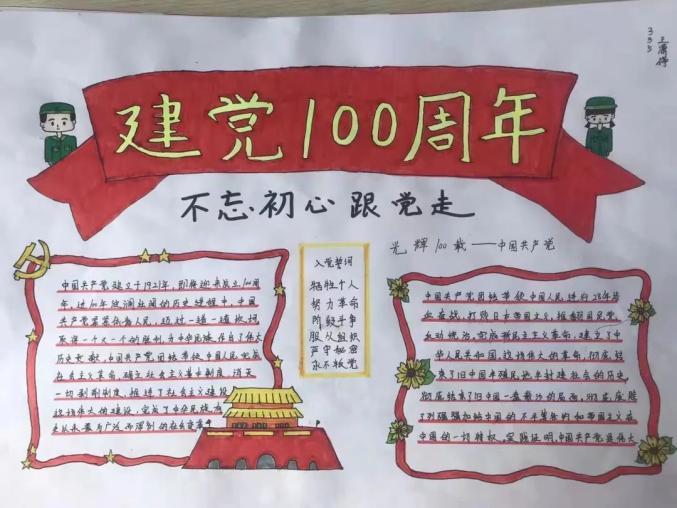 建党100周年
不忘初心跟党走
光辉100载——中国共产党
中国共产党建立于1921年,即将迎来成立100周
年,过100年波澜壮阔的历史进程中,中国
共产党紧紧依靠人民,
取得一个又一个的胜利,为中华民族作自了伟大
历史贡献,中国共产党团结带领中国人民完成
社会主义革命,确立社会主义基本制度,消灭
一切剥削制度,推进了社会主义建设
入党誓词
牺牲个人
努力革命
阶级斗争
服从组织
严守秘密
永不叛党
中国共产党团结带领中国人民进行28年浴
血奋战,打败日本帝国主义,推翻国民党
反动统治,完成新民主主义革命,建立了中
华人民共和国,这场伟大的革命,彻底结
束了旧中国半殖民地半封建社会的历史,
彻底结束了旧中国一盘散沙的局面,彻底废除
了列强强加给中国的不平等条约和帝国主义在
中国的一切特权,实践证明,中国共产党是伟大
335